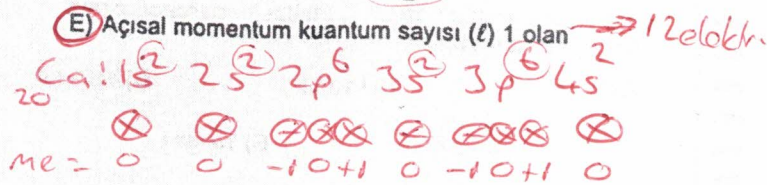 E) Açısal momentum kuantum sayısı (ℓ) 1 olan → 12elektr.
₂₀Ca: 1s² 2s² 2p⁶ 3s² 3p⁶ 4s²
me = 0 0 -1 0 +1 0 -1 0 +1 0